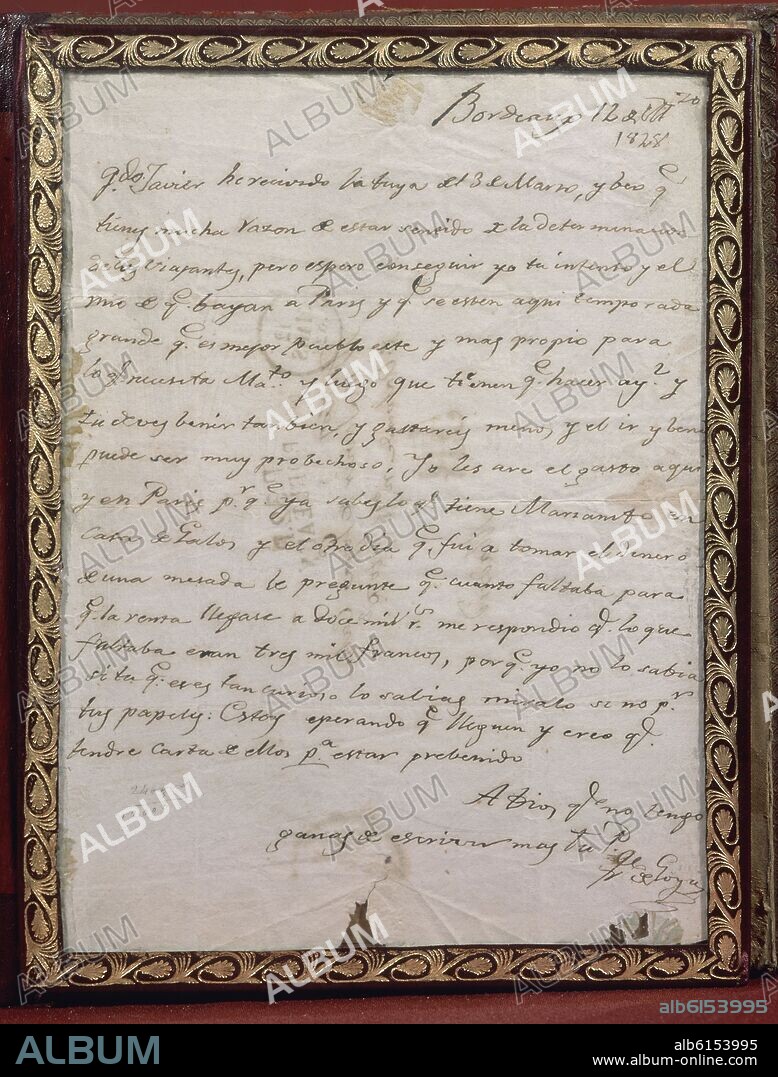 Bordeaux 12 de
1828
q.do Javier he recivido la tuya del 3 de Marzo, y beo q.e
tienes mucha razon de estar sentido de la determinacion
de los Viajantes, pero espero conseguir yo tu intento y el
mio de q.e bayan a Paris y q.e se esten aqui temporada
grande q.e es mejor pueblo este y mas propio para
lo q.e necesita Ma.no y luego que tienen q.e hacer ay.r y
tu deves benir tambien, y gastareis menos y el ir y benir
puede ser muy probechoso, Yo les are el gasto aqui
y en Paris p.r q.e ya sabes lo q.e tiene Marianito en
casa de Galos y el otro dia q.e fui a tomar el dinero
de una mesada le pregunte q.e cuanto faltaba para
q.e la renta llegase a doce mil r.s me respondio q.e lo que
faltaba eran tres mil francos, por q.e yo no lo sabia
si tu q.e eres tan curioso lo sabias miralo si no p.r
tus papeles: Estoy esperando q.e lleguen y creo q.e
tendre carta de ellos p.a estar prebenido
A Dios q.e no tengo
ganas de escrivir mas tu P.
Fr.co de Goya
ALBUM
alb6153995
ALBUM
alb6153995
www.album-online.com